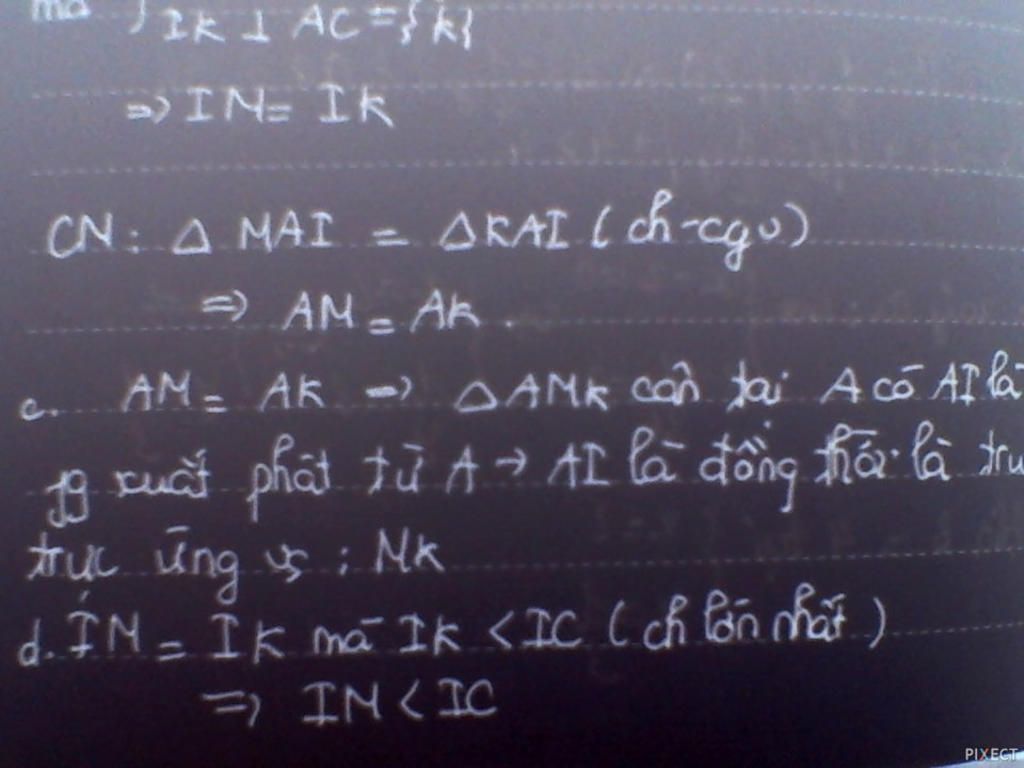 mà } IK ⊥ AC = {K}
=> IM = IK
CM: Δ MAI = ΔKAI (ch-cgv)
=> AM = AK.
c. AM = AK => ΔAMK cân tại A có AI là
pg xuất phát từ A → AI là đồng thời là
trực ứng vs: MK
d. IM = IK mà IK < IC (ch lớn nhất)
=> IM < IC
PIXECT